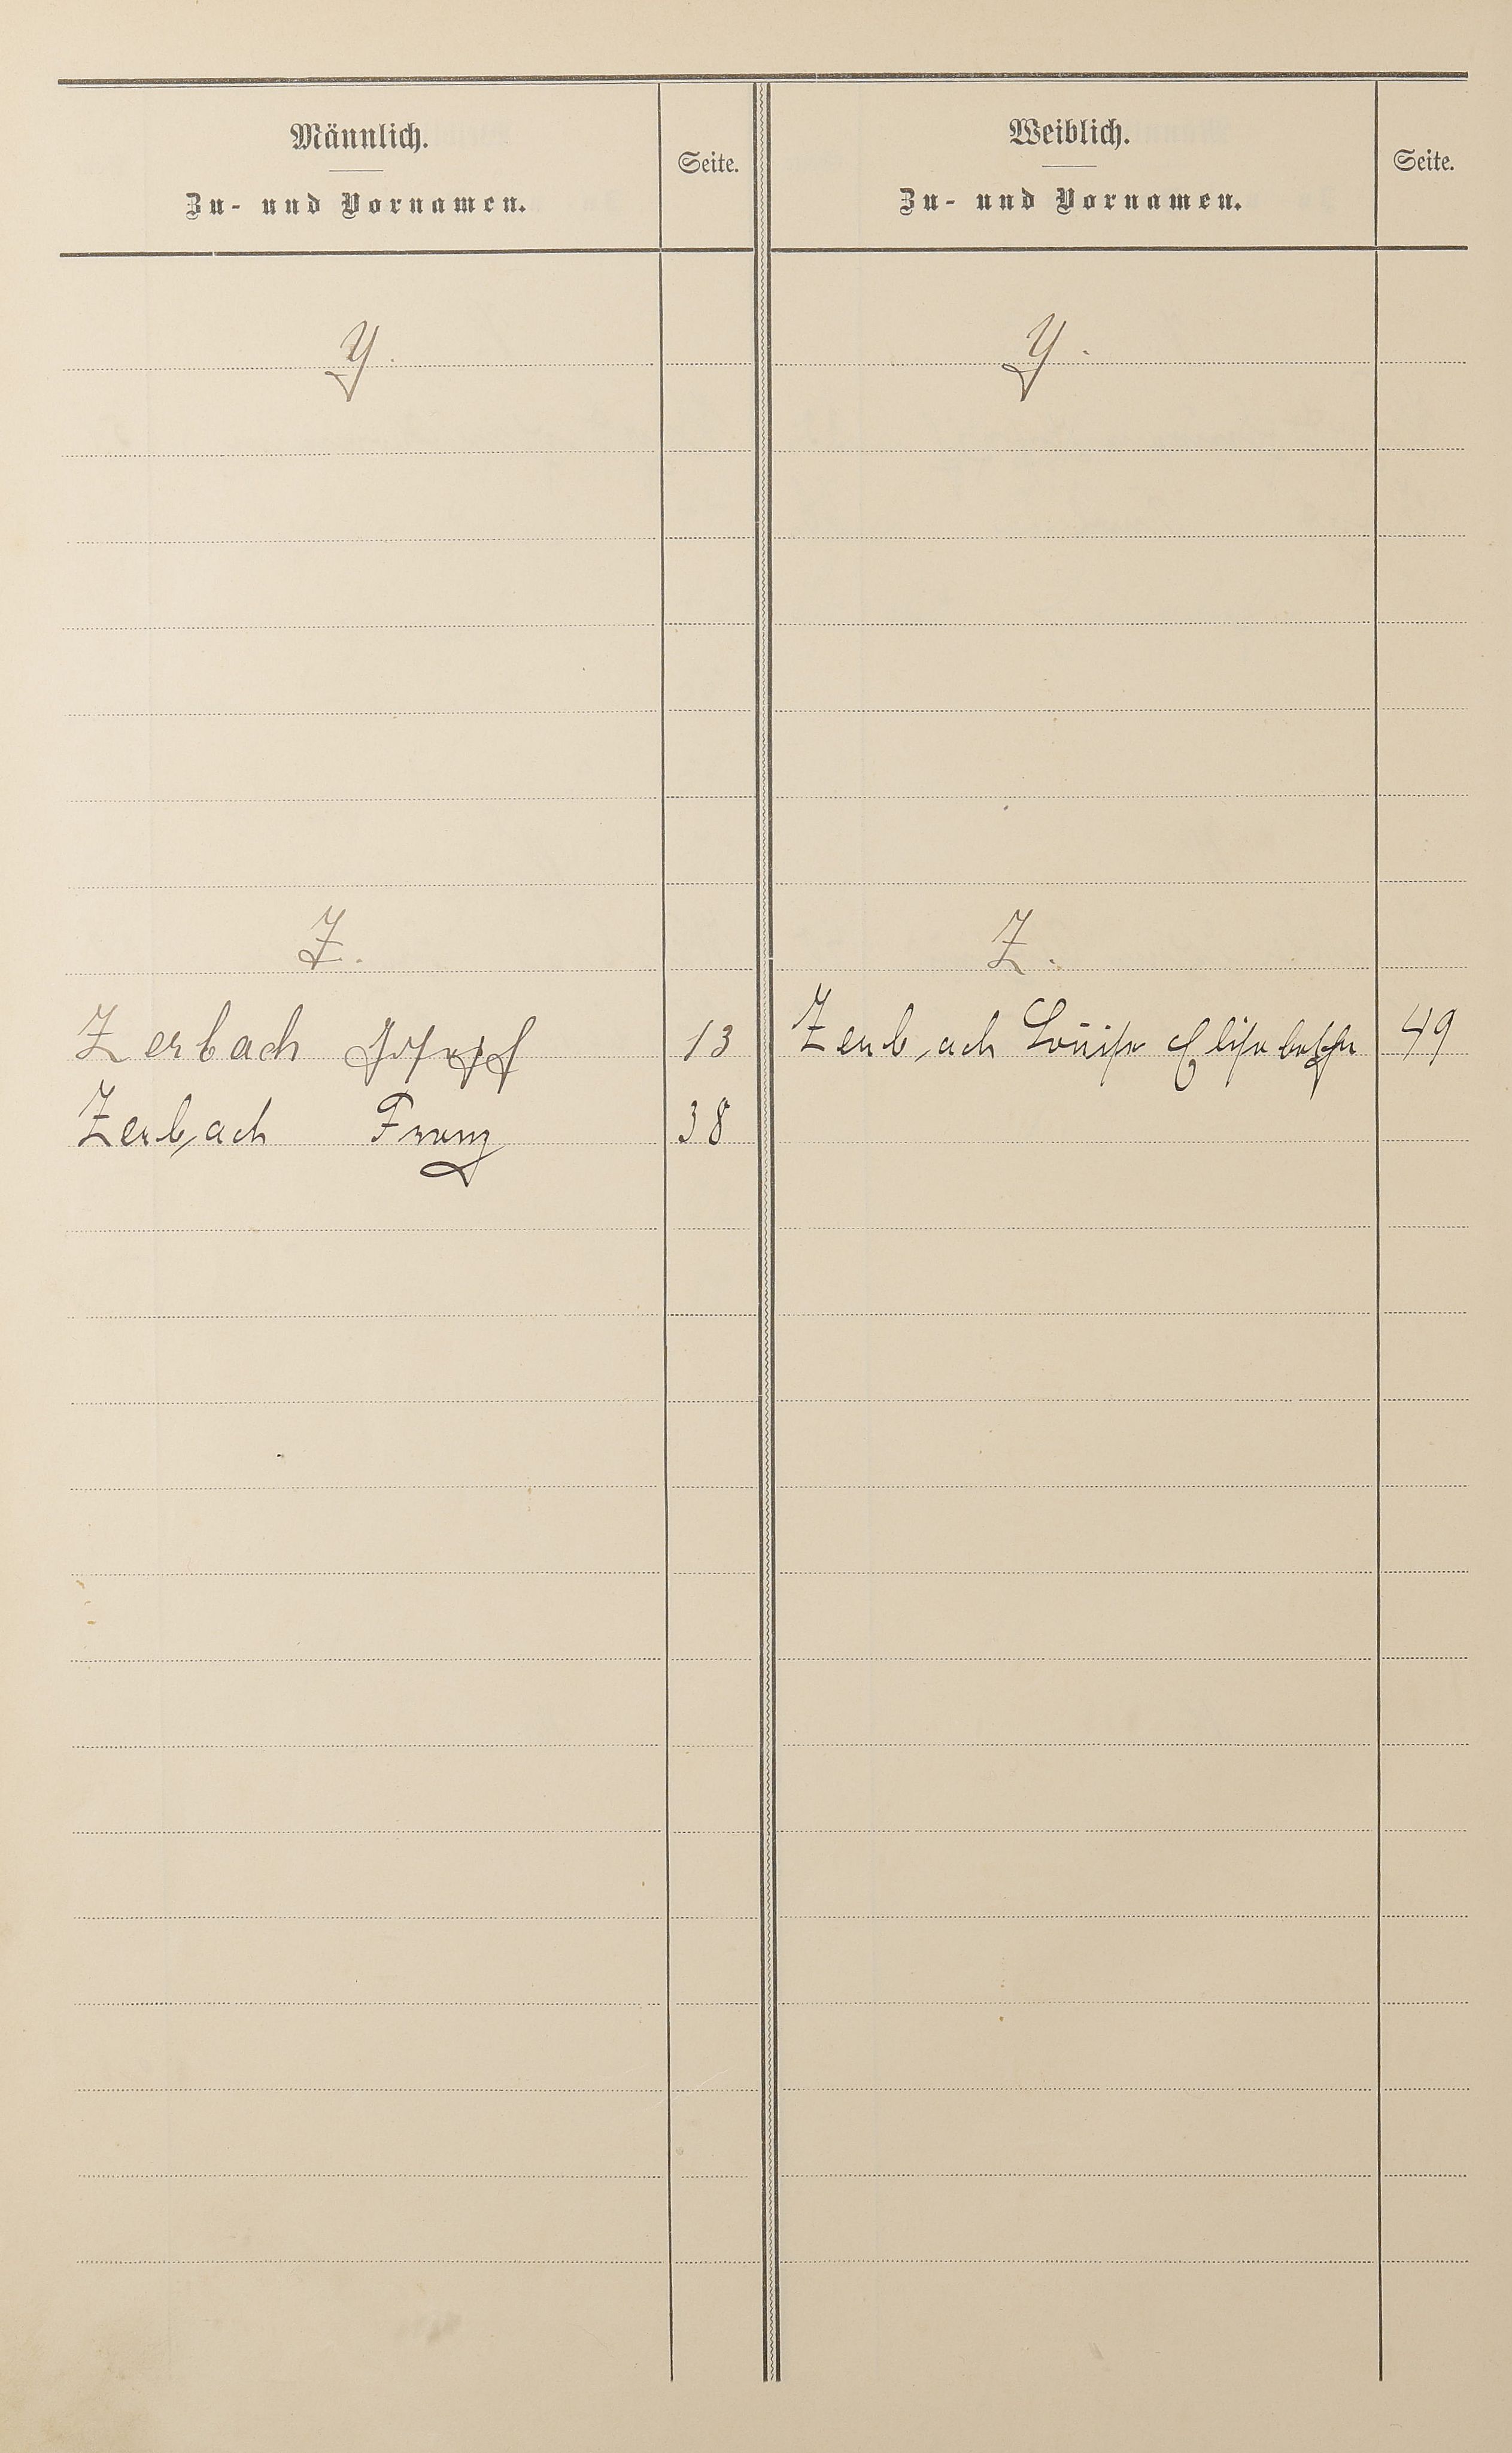 Männlich.
Zu- und Vornamen.
Seite.
Weiblich.
Zu- und Vornamen.
Seite.
Y.
Y.
Z.
Z.
Zerbach Josef 13
Zerbach Louise Elisabetha 49
Zerbach Franz 38